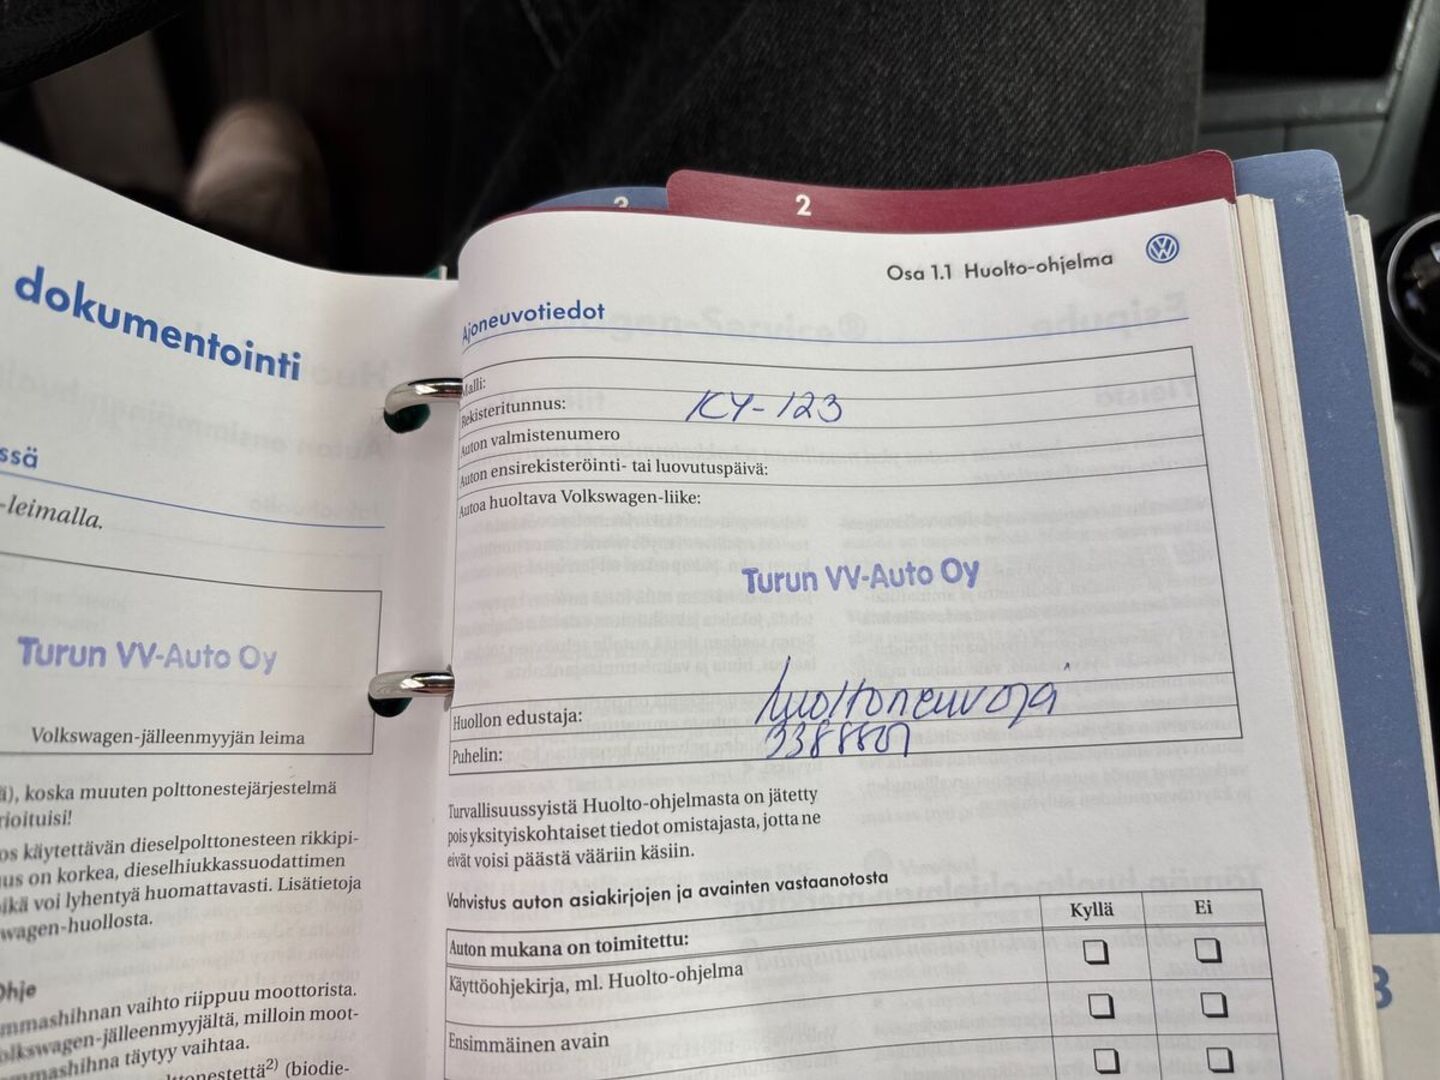 dokumentointi
ssä
-leimalla.
Turun VV-Auto Oy
Volkswagen-jälleenmyyjän leima
ä), koska muuten polttonestejärjestelmä
rioituisi!
os käytettävän dieselpolttonesteen rikkipi-
us on korkea, dieselhiukkassuodattimen
ikä voi lyhentyä huomattavasti. Lisätietoja
wagen-huollosta.
Ohje
mmashihnan vaihto riippuu moottorista.
olkswagen-jälleenmyyjältä, milloin moot-
mmashihna täytyy vaihtaa.
ttonestettä2) (biodie-
3
2
Osa 1.1 Huolto-ohjelma
Ajoneuvotiedot
Malli:
Rekisteritunnus: KY-123
Auton valmistenumero
Auton ensirekisteröinti- tai luovutuspäivä:
Autoa huoltava Volkswagen-liike:
Turun VV-Auto Oy
Huollon edustaja: huoltoneuvoja
Puhelin:
Turvallisuussyistä Huolto-ohjelmasta on jätetty
pois yksityiskohtaiset tiedot omistajasta, jotta ne
eivät voisi päästä vääriin käsiin.
Vahvistus auton asiakirjojen ja avainten vastaanotosta
Auton mukana on toimitettu: Kyllä Ei
Käyttöohjekirja, ml. Huolto-ohjelma
Ensimmäinen avain
3